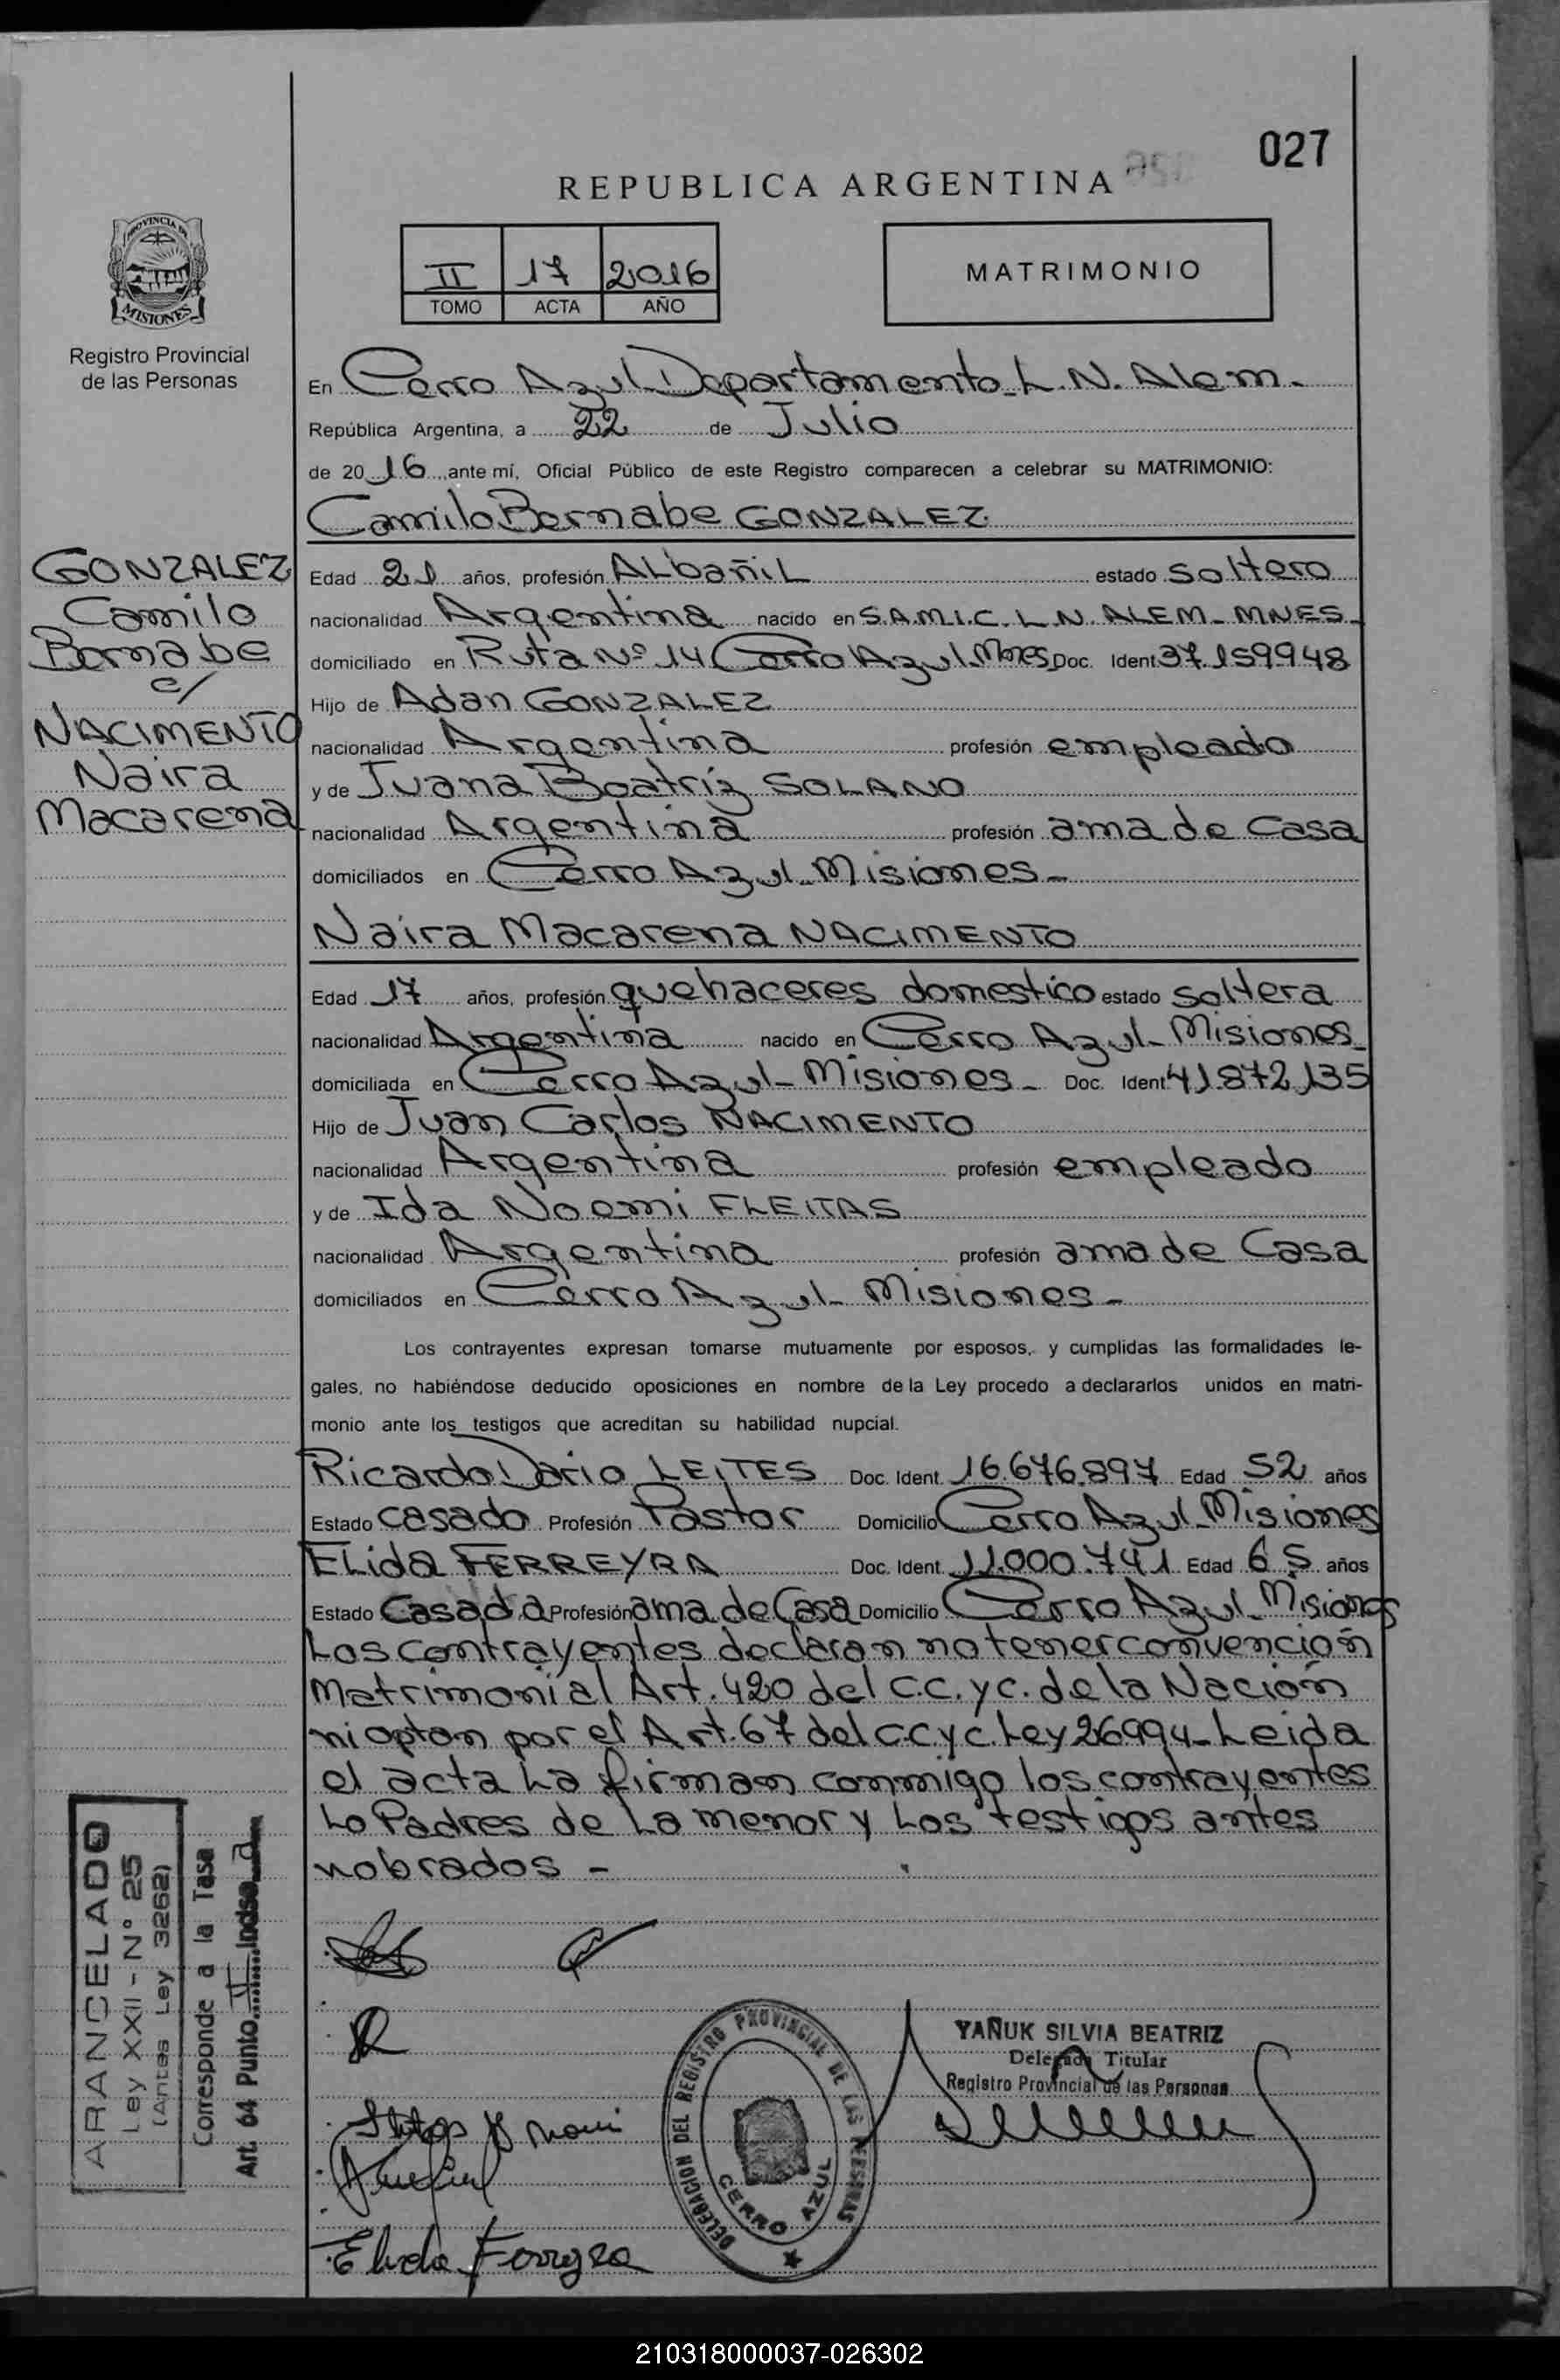 027
REPUBLICA ARGENTINA
II 17 2016
TOMO ACTA AÑO
MATRIMONIO
PROVINCIA DE
MISIONES
Registro Provincial
de las Personas
GONZALEZ
Camilo
Bernabe
c/
NACIMENTO
Naira
Macarena
En Cerro Azul Departamento L.N. Alem.
República Argentina, a 22 de Julio
de 20 16 ante mí, Oficial Público de este Registro comparecen a celebrar su MATRIMONIO:
Camilo Bernabe GONZALEZ
Edad 21 años, profesión ALbañiL estado soltero
nacionalidad Argentina nacido en S.A.M.I.C. L.N. ALEM - MNES.
domiciliado en Ruta Nº 14 Cerro Azul Mnes Doc. Ident 37.159948
Hijo de Adan GONZALEZ
nacionalidad Argentina profesión empleado
y de Juana Beatriz SOLANO
nacionalidad Argentina profesión ama de Casa
domiciliados en Cerro Azul - Misiones -
Naira Macarena NACIMENTO
Edad 17 años, profesión quehaceres domestico estado soltera
nacionalidad Argentina nacido en Cerro Azul - Misiones
domiciliada en Cerro Azul - Misiones - Doc. Ident 41.872.135
Hijo de Juan Carlos NACIMENTO
nacionalidad Argentina profesión empleado
y de Ida Noemi FLEITAS
nacionalidad Argentina profesión ama de Casa
domiciliados en Cerro Azul - Misiones -
Los contrayentes expresan tomarse mutuamente por esposos, y cumplidas las formalidades le-
gales, no habiéndose deducido oposiciones en nombre de la Ley procedo a declararlos unidos en matri-
monio ante los testigos que acreditan su habilidad nupcial.
Ricardo Dario LEITES Doc. Ident. 16.676.897 Edad 52 años
Estado casado Profesión Pastor Domicilio Cerro Azul - Misiones
ELida FERREYRA Doc. Ident. 11.000.741 Edad 65 años
Estado Casada Profesión ama de Casa Domicilio Cerro Azul - Misiones
Los contrayentes declaran no tener convención
Matrimonial Art. 420 del C.C. y C. de la Nación
ni optan por el Art. 67 del C.C y C. Ley 26994 - Leida
el acta La firman conmigo los contrayentes
Lo Padres de La menor y Los testigos antes
nobrados -
ARANCELADO
Ley XXII - Nº 25
(Antes Ley 3262)
Corresponde a la Tasa
Art. 64 Punto II Inciso a
DELEGACION DEL REGISTRO PROVINCIAL DE LAS PERSONAS
CERRO AZUL
YAÑUK SILVIA BEATRIZ
Delegada Titular
Registro Provincial de las Personas
Elida Ferreyra
210318000037-026302